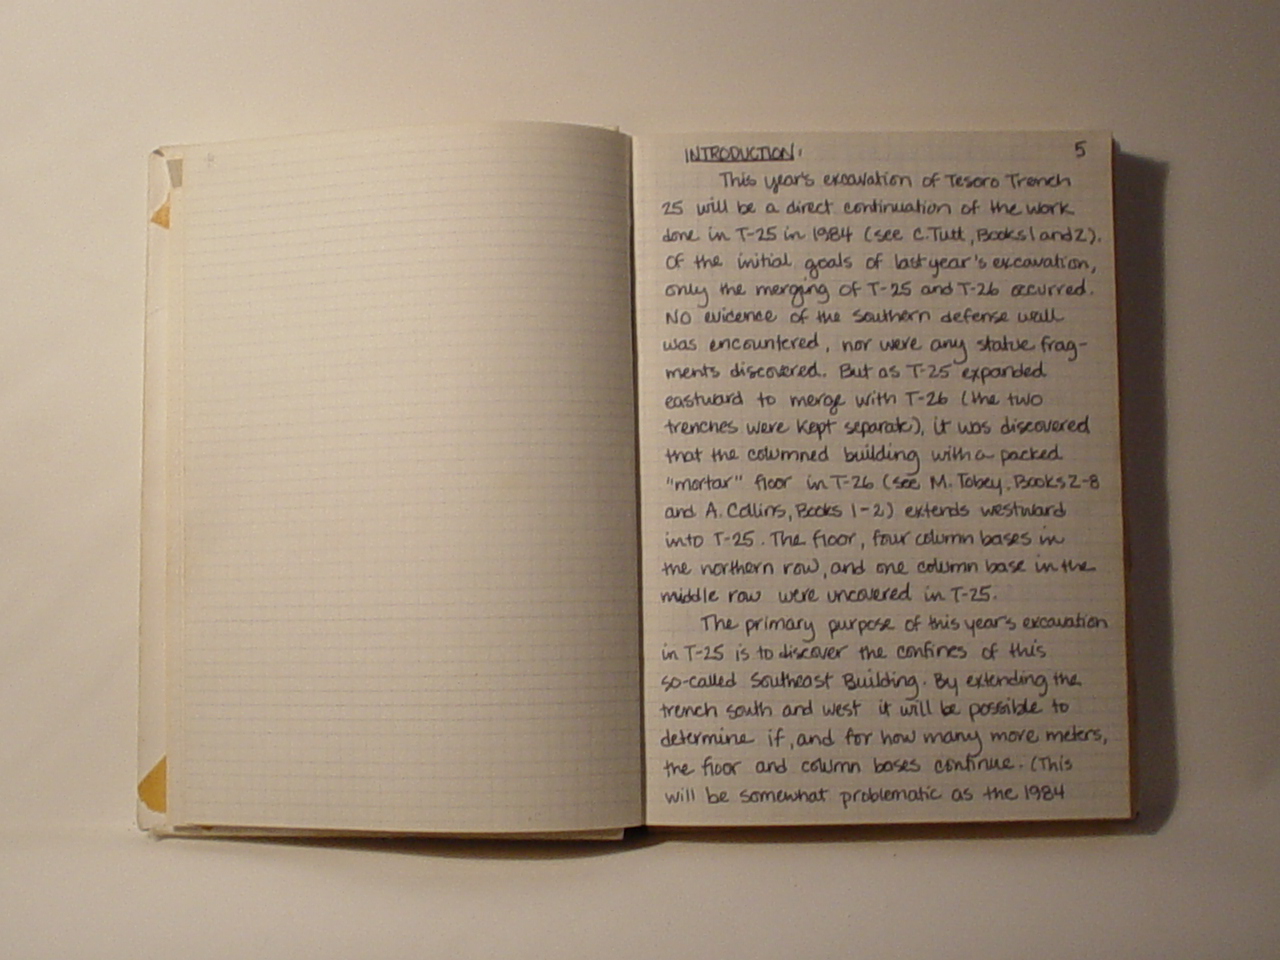 INTRODUCTION: 5
This year's excavation of Tesoro Trench
25 will be a direct continuation of the work
done in T-25 in 1984 (see C. Tutt, Books 1 and 2).
Of the initial goals of last year's excavation,
only the merging of T-25 and T-26 occurred.
No evidence of the southern defense wall
was encountered, nor were any statue frag-
ments discovered. But as T-25 expanded
eastward to merge with T-26 (the two
trenches were kept separate), it was discovered
that the columned building with a packed
"mortar" floor in T-26 (see M. Tobey, Books 2-8
and A. Collins, Books 1-2) extends westward
into T-25. The floor, four column bases in
the northern row, and one column base in the
middle row were uncovered in T-25.
The primary purpose of this year's excavation
in T-25 is to discover the confines of this
so-called Southeast Building. By extending the
trench south and west it will be possible to
determine if, and for how many more meters,
the floor and column bases continue. (This
will be somewhat problematic as the 1984